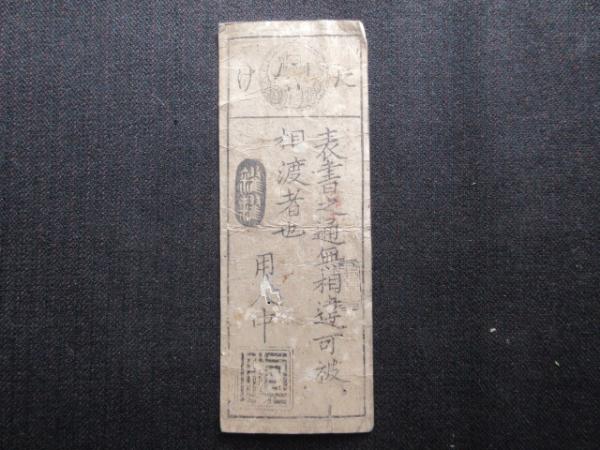 た
け
表書之通無相違可被
相渡者也
用人中